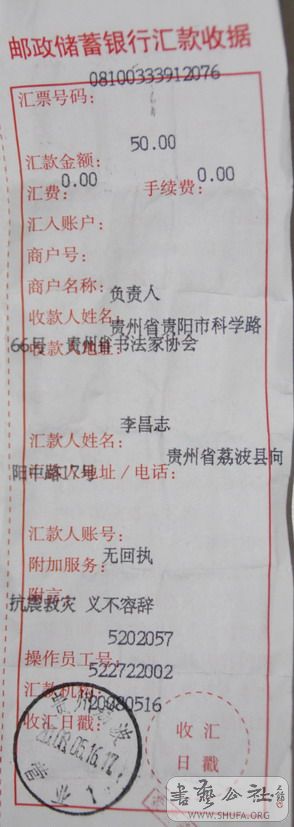 邮政储蓄银行汇款收据
08100333912076
汇票号码：
50.00
汇款金额：
0.00 0.00
汇费： 手续费：
汇入账户：
商户号：
商户名称：
负责人
收款人姓名：
贵州省贵阳市科学路
66号 贵州省书法家协会
收款人地址：
李昌志
汇款人姓名：
贵州省荔波县向
阳中路17号
地址/电话：
汇款人账号：
无回执
附加服务：
附言：
抗震救灾 义不容辞
5202057
操作员工号：
522722002
汇款机构：
20080516
收汇日戳：
收汇
日戳
书艺公社
WWW.SHUFA.ORG